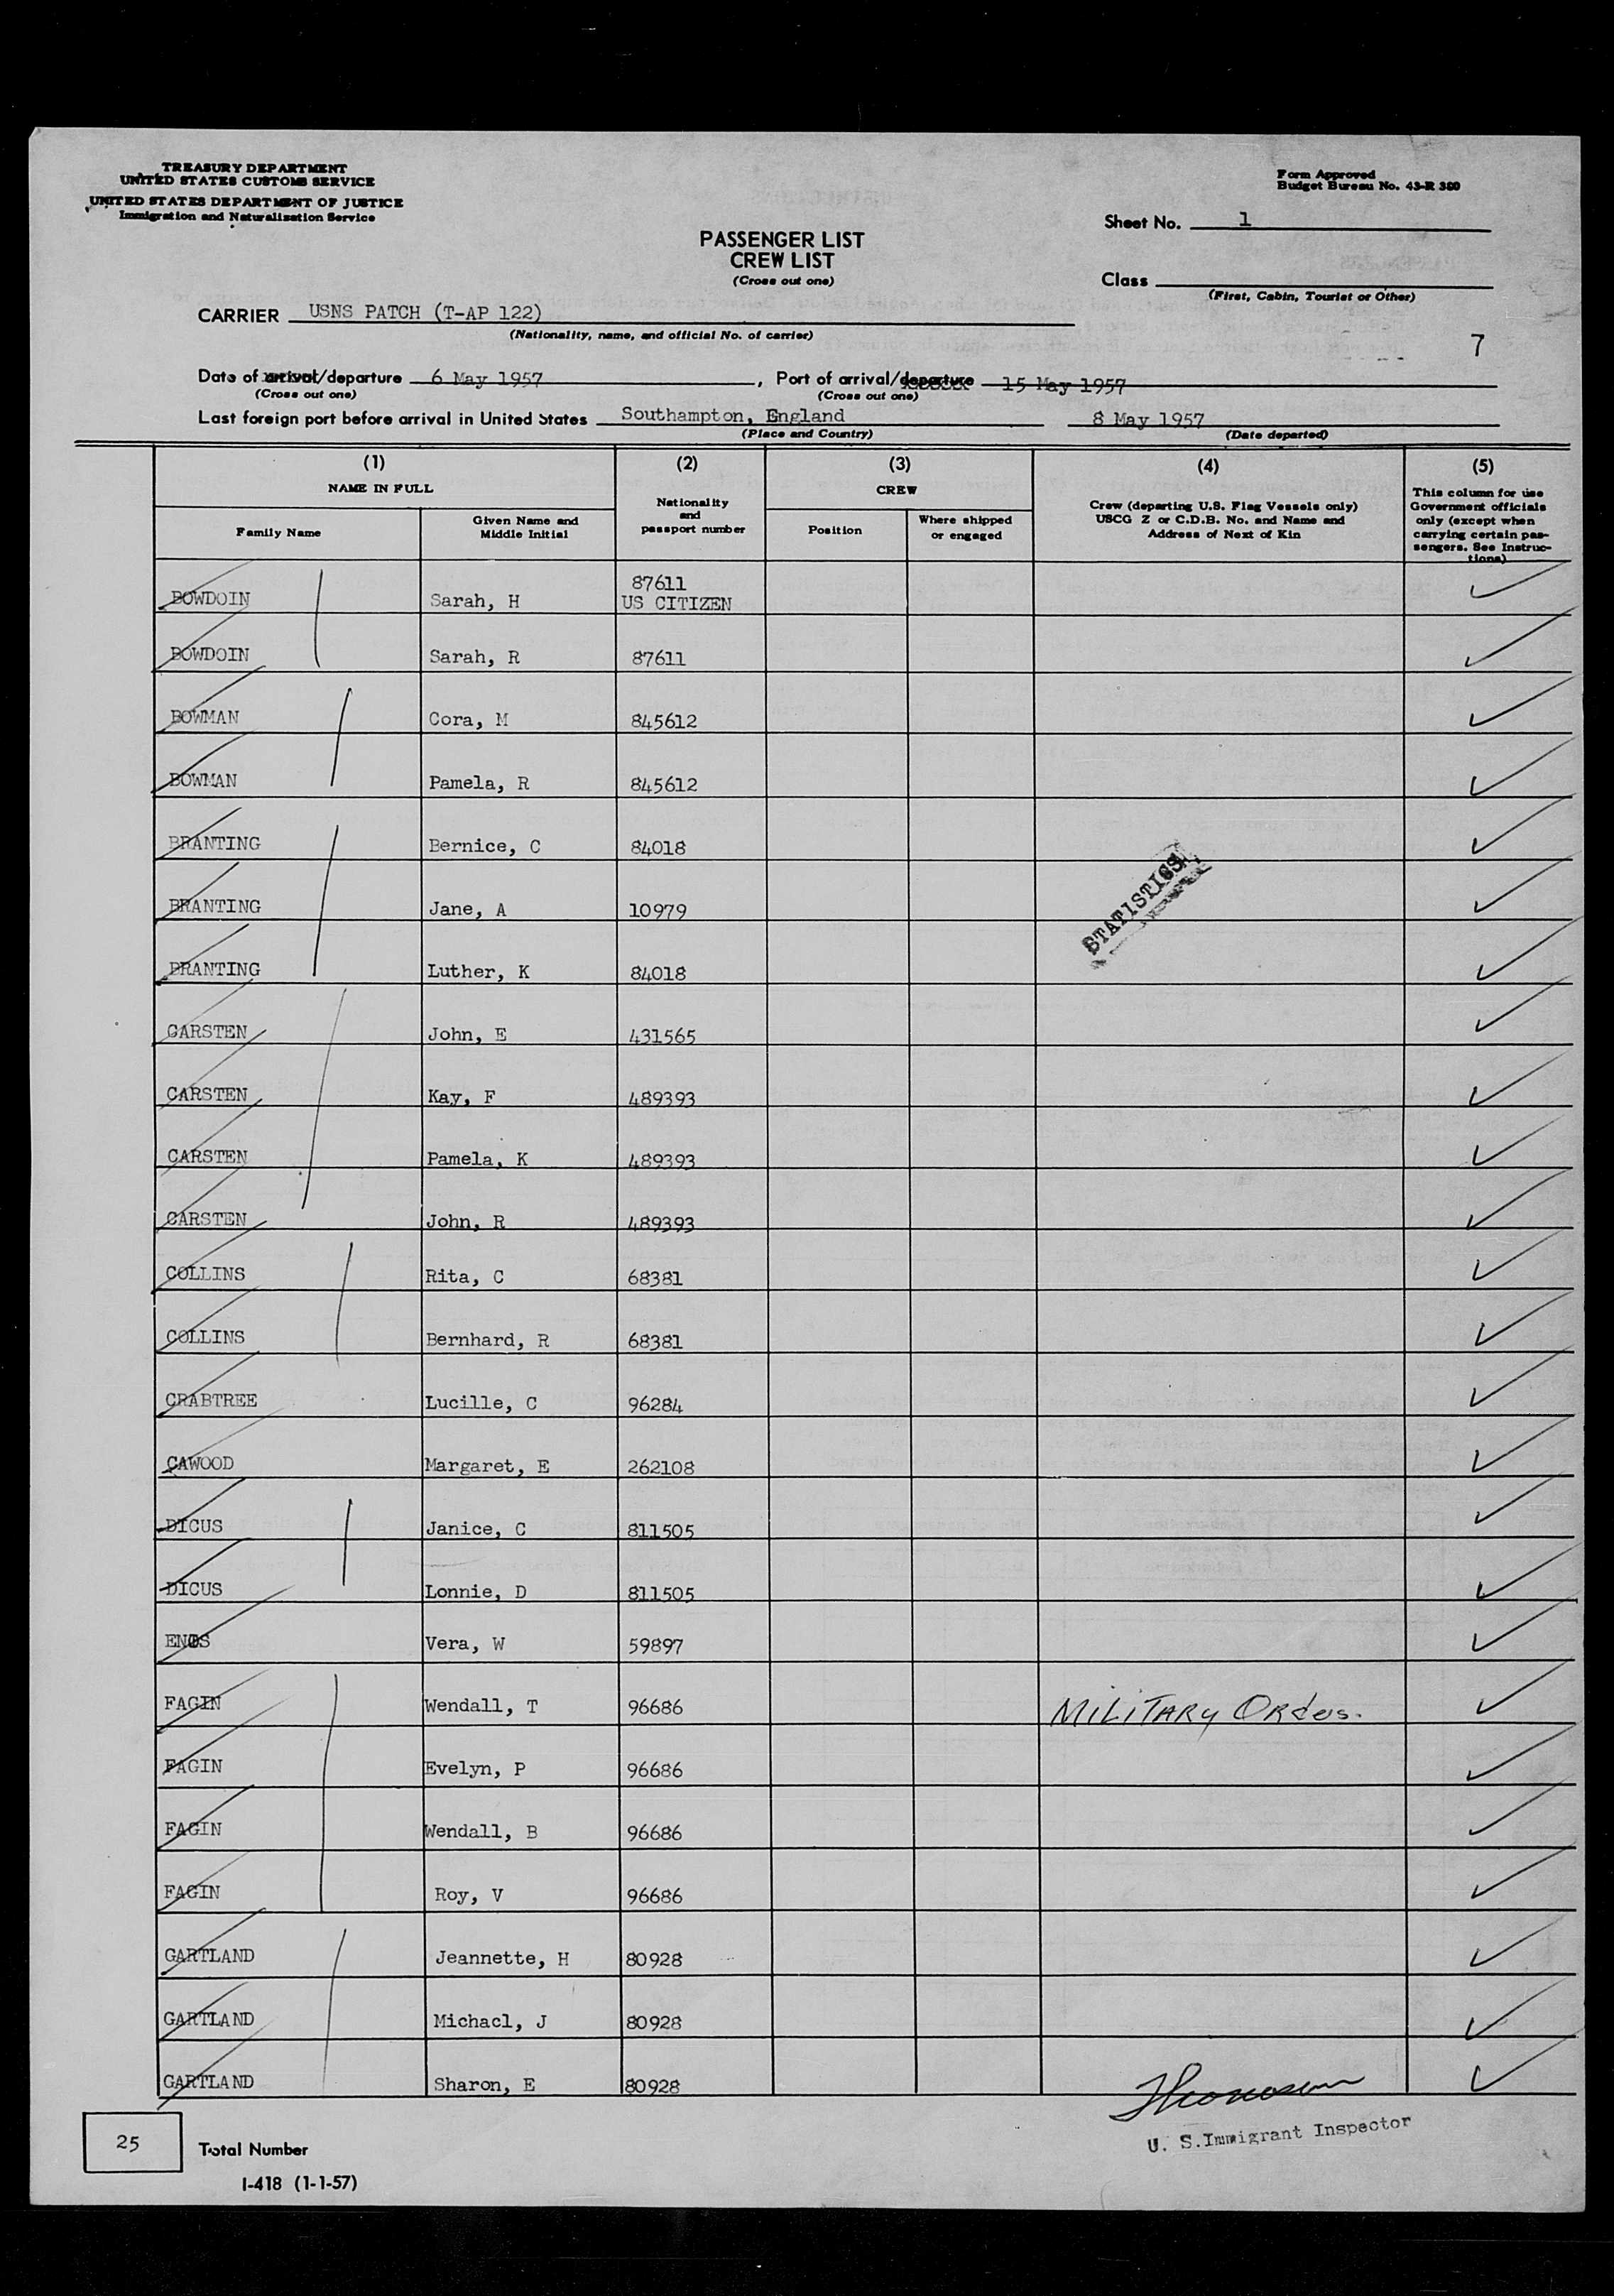 TREASURY DEPARTMENT
UNITED STATES CUSTOMS SERVICE
UNITED STATES DEPARTMENT OF JUSTICE
Immigration and Naturalization Service
Form Approved
Budget Bureau No. 43-R 380
Sheet No. 1
PASSENGER LIST
CREW LIST
(Cross out one)
Class
(First, Cabin, Tourist or Other)
CARRIER USNS PATCH (T-AP 122)
(Nationality, name, and official No. of carrier)
7
Date of arrival/departure 6 May 1957, Port of arrival/departure 15 May 1957
(Cross out one) (Cross out one)
Last foreign port before arrival in United States Southampton, England 8 May 1957
(Place and Country) (Date departed)
(1) (2) (3) (4) (5)
NAME IN FULL
Family Name
Given Name and
Middle Initial
Nationality
and
passport number
CREW
Position
Where shipped
or engaged
Crew (departing U.S. Flag Vessels only)
USCG Z or C.D.B. No. and Name and
Address of Next of Kin
This column for use
Government officials
only (except when
carrying certain pas-
sengers. See Instruc-
tions)
BOWDOIN Sarah, H 87611
US CITIZEN
BOWDOIN Sarah, R 87611
BOWMAN Cora, M 845612
BOWMAN Pamela, R 845612
BRANTING Bernice, C 84018
BRANTING Jane, A 10979
STATISTICS
BRANTING Luther, K 84018
CARSTEN John, E 431565
CARSTEN Kay, F 489393
CARSTEN Pamela, K 489393
CARSTEN John, R 489393
COLLINS Rita, C 68381
COLLINS Bernhard, R 68381
CRABTREE Lucille, C 96284
CAWOOD Margaret, E 262108
DICUS Janice, C 811505
DICUS Lonnie, D 811505
ENOS Vera, W 59897
FAGIN Wendall, T 96686 MILITARY Ordes.
FAGIN Evelyn, P 96686
FAGIN Wendall, B 96686
FAGIN Roy, V 96686
GARTLAND Jeannette, H 80928
GARTLAND Michacl, J 80928
GARTLAND Sharon, E 80928
U. S. Immigrant Inspector
25 Total Number
I-418 (1-1-57)